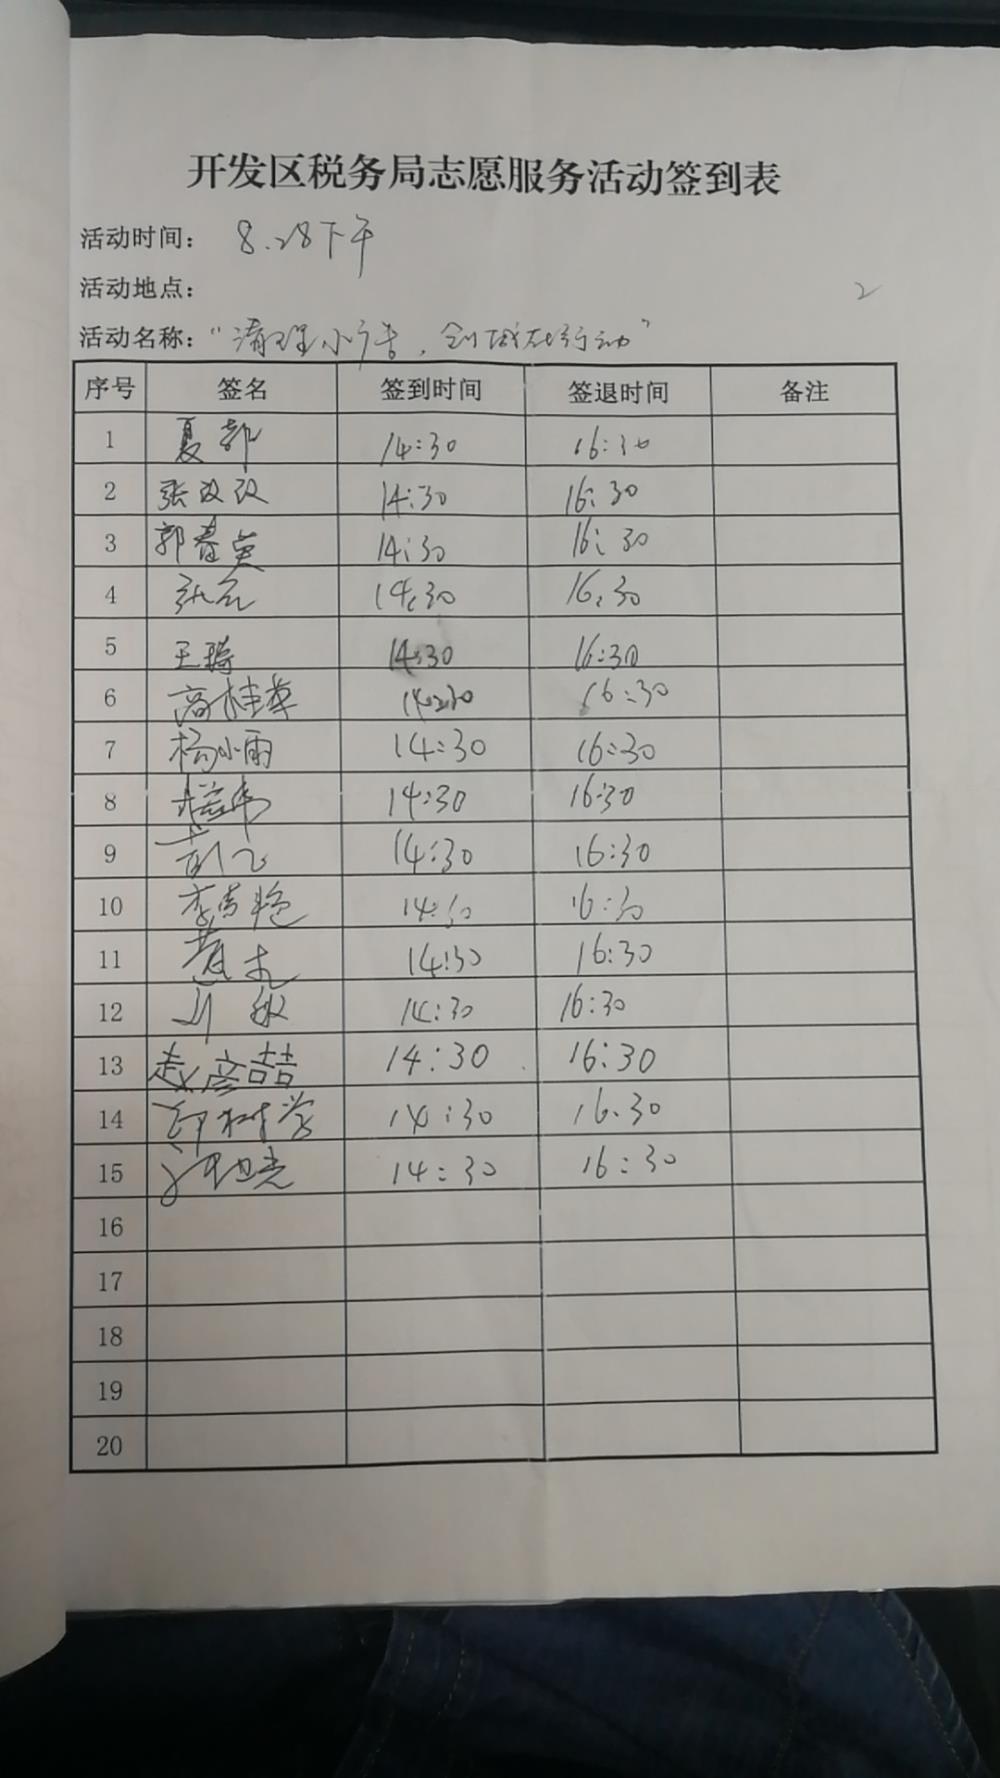 开发区税务局志愿服务活动签到表
活动时间: 8.28下午
活动地点:
2
活动名称: "清理小广告,创城在行动"
序号 签名 签到时间 签退时间 备注
1 夏 14:30 16:30
2 张改改 14:30 16:30
3 郭春英 14:30 16:30
4 14:30 16:30
5 王琦 14:30 16:30
6 高桂华 14:30 16:30
7 杨小雨 14:30 16:30
8 14:30 16:30
9 14:30 16:30
10 李 艳 14:30 16:30
11 14:30 16:30
12 14:30 16:30
13 赵彦喆 14:30 16:30
14 学 14:30 16:30
15 14:30 16:30
16
17
18
19
20